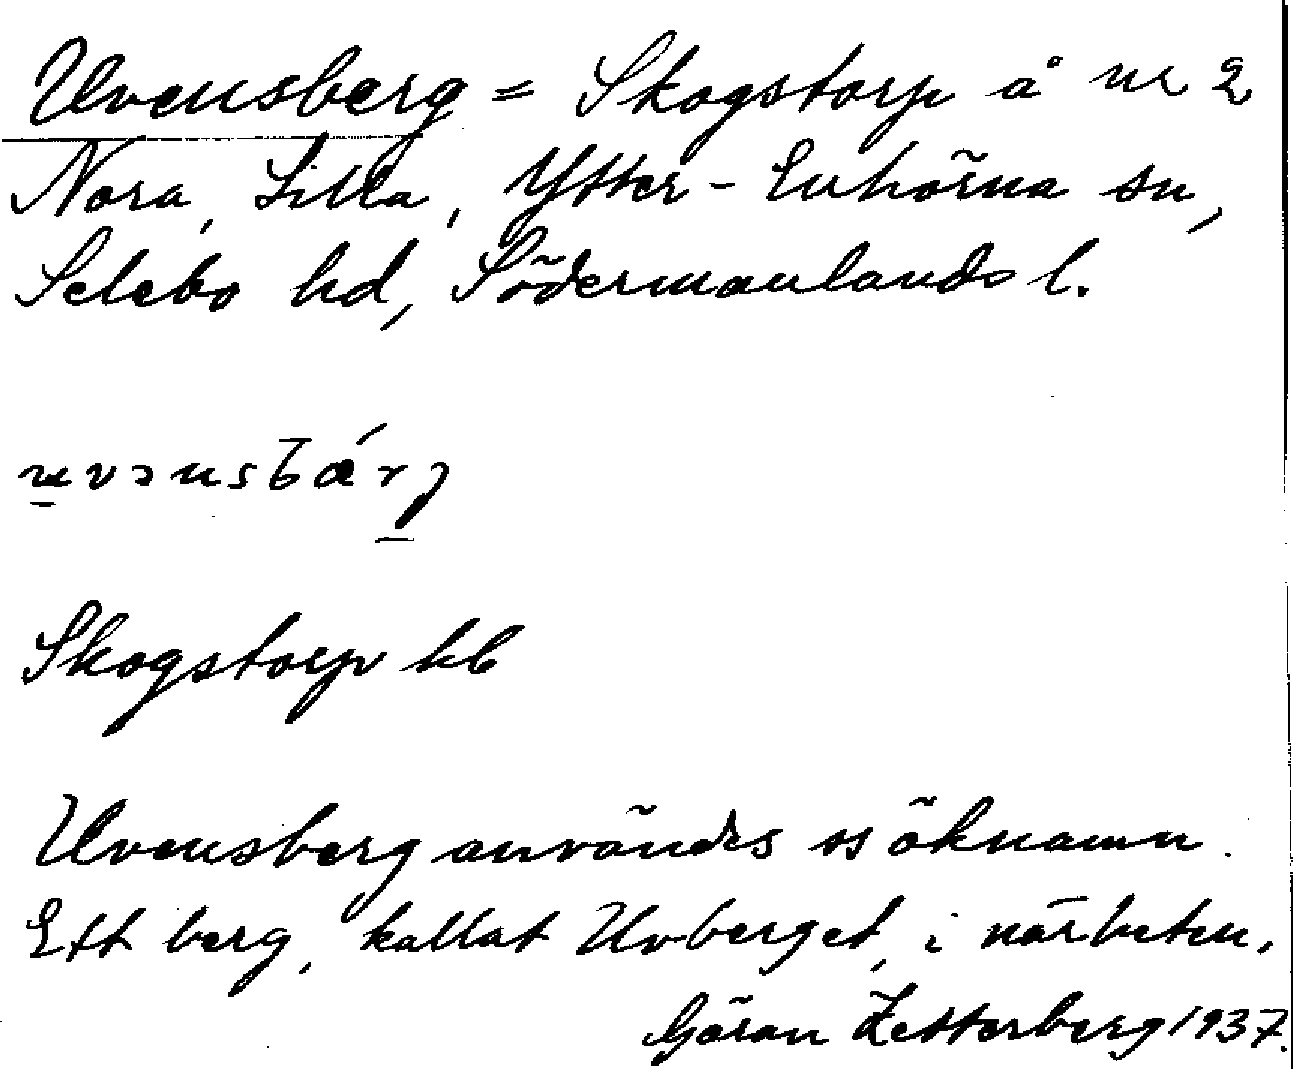 Uvensberg = Skogstorp å nr 2
Nora, Lilla, Ytter-Enhörna sn,
Selebo hd, Södermanlands l.
uvənsbárj
Skogstorp kb
Uvensberg användes ss öknamn.
Ett berg, kallat Uvberget, i närheten.
Göran Zetterberg 1937.